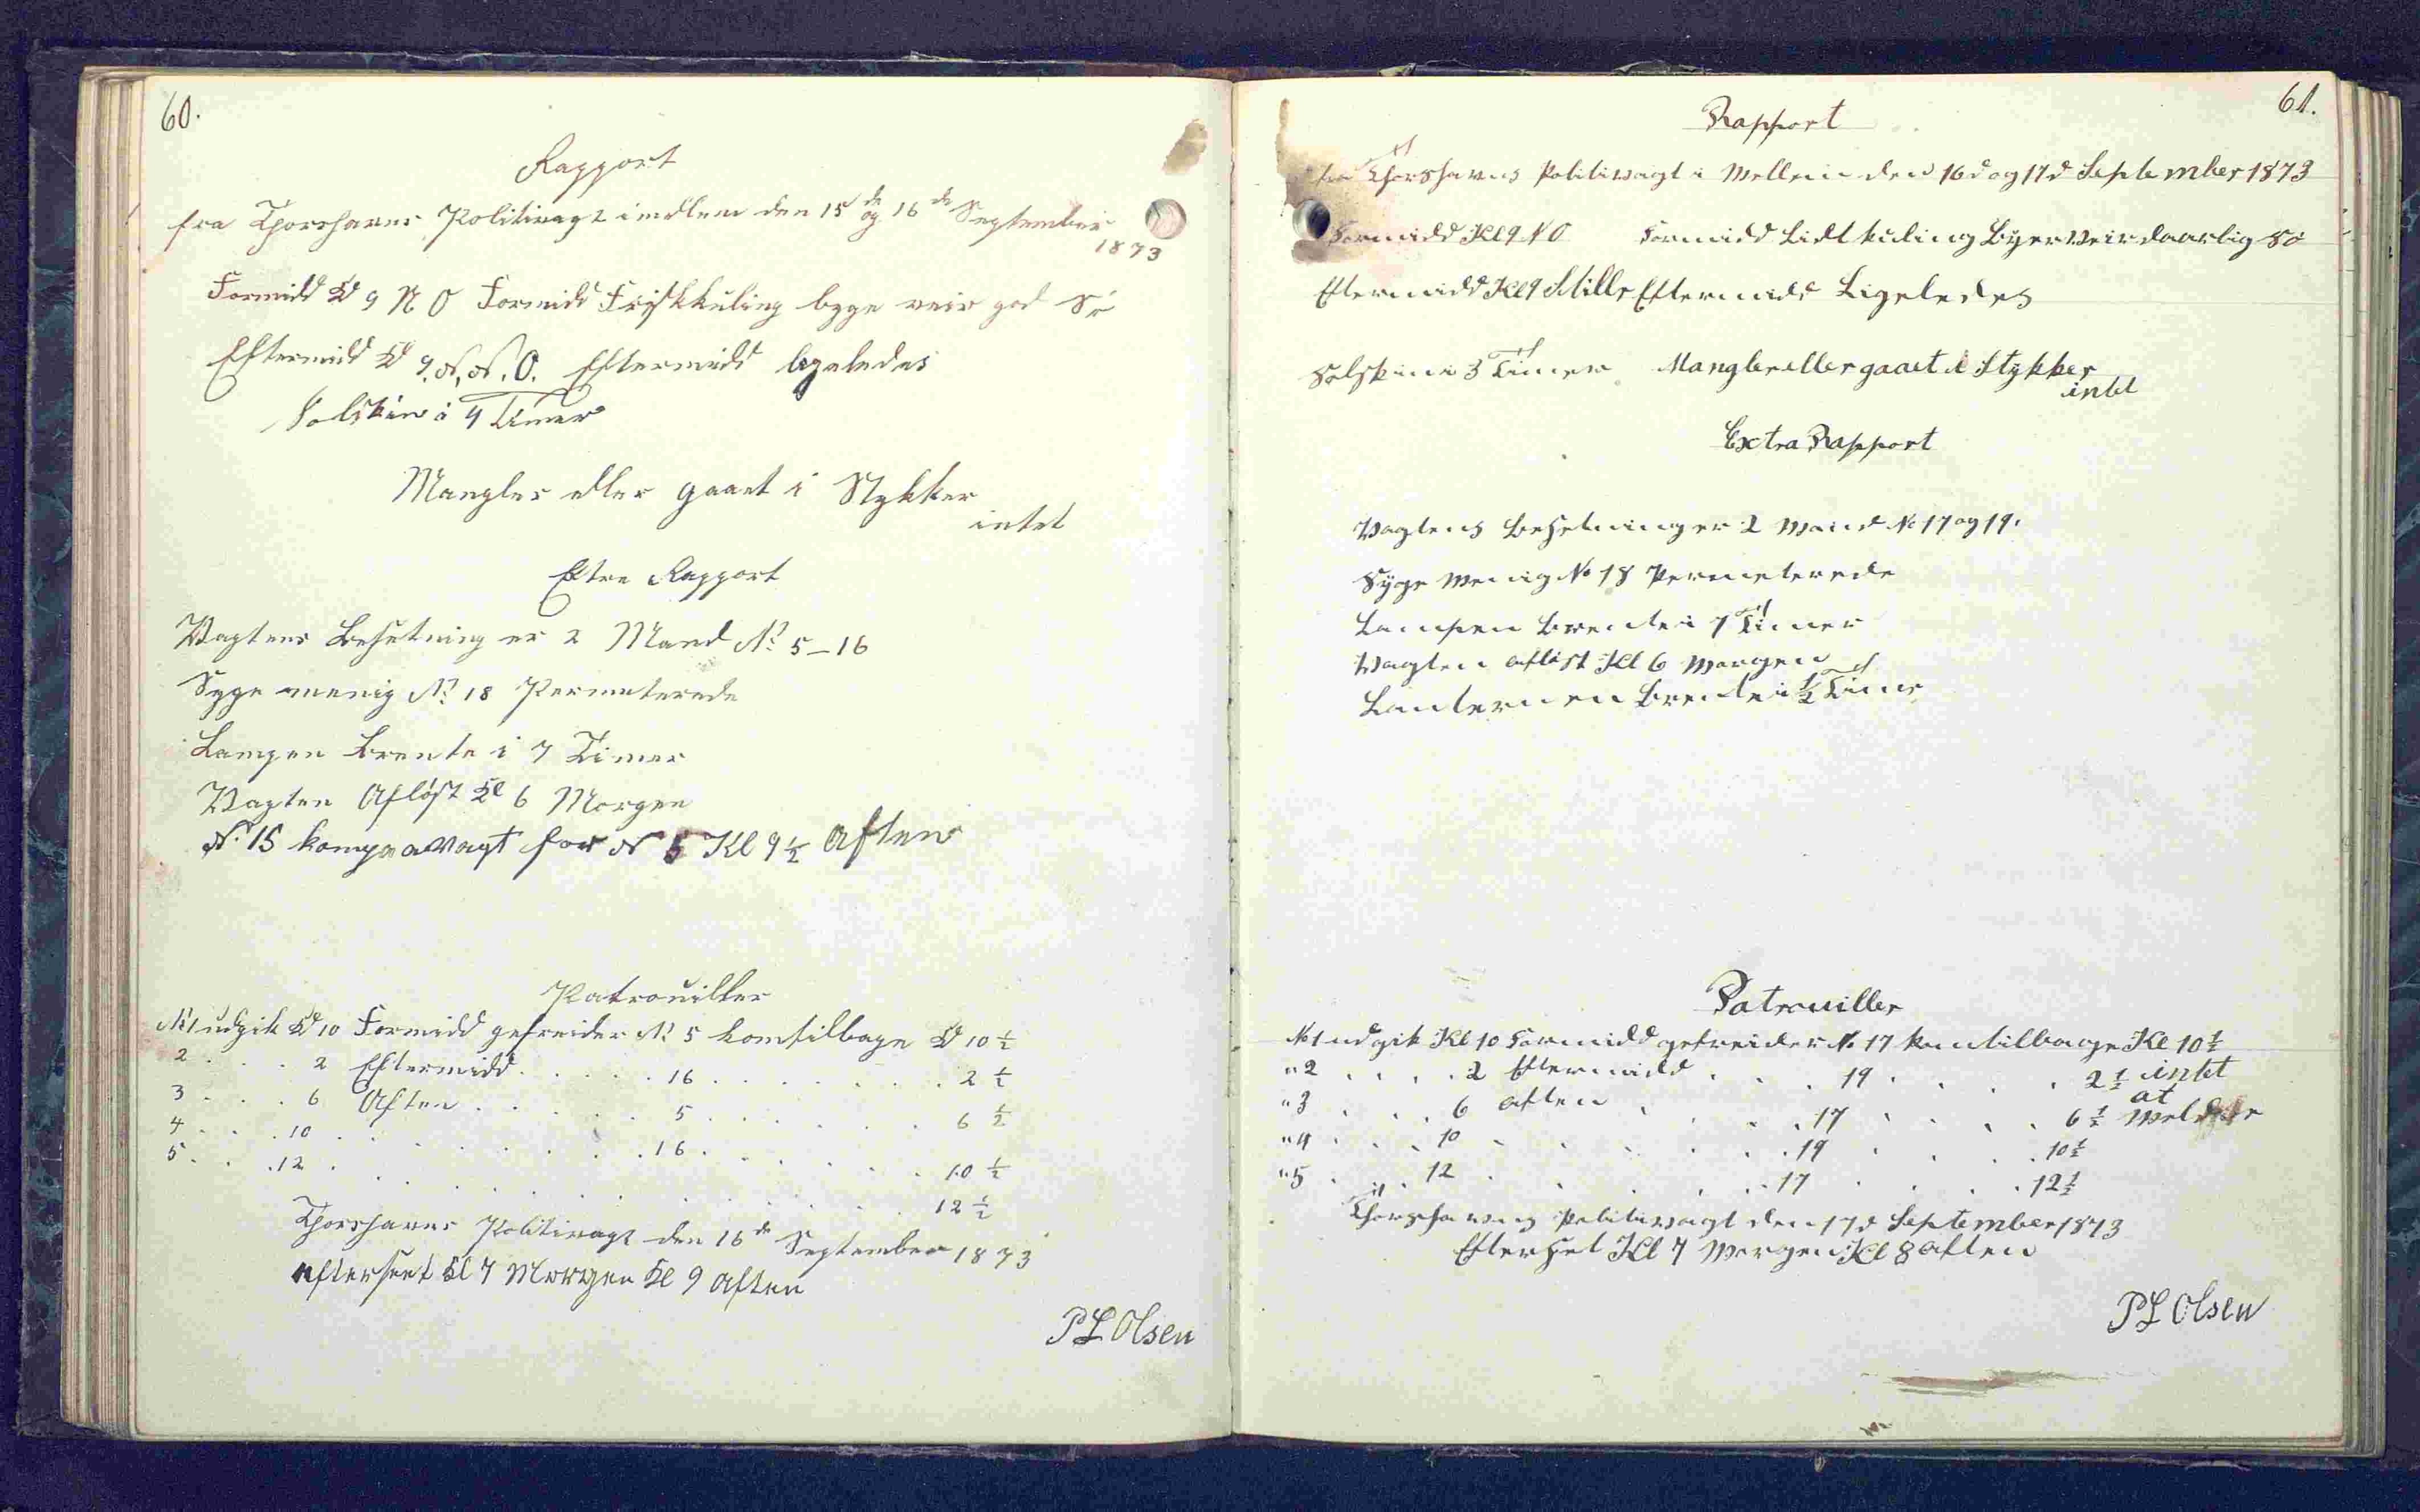 60.
Rapport
fra Thorshavns Politivagt imellem den 15de og 16de September
1873
Formidd Kl 9 N O Formidd Friskkuling byge veir god Sö
Eftermidd Kl 9. N. N. O. Eftermidd ligeledes
Solskin i 4 Timer
Mangler eller gaaet i Stykker
intet
Extra Rapport
Vagtens Besetning er 2 Mand No 5-16
Syge menig No 18 Permeterede
Lampen brente i 7 Timer
Vagten Aflöst Kl 6 Morgen
N. 15 kom paa Vagt for N 5 Kl 9 1/2 Aften
Patrouiller
No 1 udgik Kl 10 Formidd gefreider No 5 kom tilbage Kl 10 1/2
2 . . . 2 Eftermidd . . . . . 16 . . . . . . . 2 1/2
3 . . . 6 Aften . . . . . 5 . . . . . . 6 1/2
4 . . . 10 . . . . . . . 16 . . . . . . 10 1/2
5 . . . 12 . . . . . . . . . . . . 12 1/2
Thorshavns Politivagt den 16de September 1873
efterseet Kl 7 Morgen Kl 9 Aften
PL Olsen
61.
Rapport
fra Thorshavns Politivagt i Mellem den 16d og 17d September 1873
Formidd Kl 9 NO Formidd Lidt kuling Byer Veir daarlig Sö
Eftermidd Kl 9 Stille Eftermidd Ligeledes
Solskin i 3 Timer Mangler eller gaaet i Stykker
intet
Extra Rapport
Vagtens Besetning er 2 Mand No 17 og 19.
Syge Menig No 18 Permeterede
Lampen Brente i 7 Timer
Vagten aflöst Kl 6 Morgen
Lanternen Brente i 1/2 Time
Patrouiller
No 1 udgik Kl 10 Formidd gefreider No 17 kom tilbage Kl 10 1/2
" 2 . . . . 2 Eftermidd . . . 19 . . . . 2 1/2 intet
" 3 . . . 6 aften . . . 17 . . . . 6 1/2 at Melde
" 4 . . . 10 . . . . . . 19 . . . 10 1/2
" 5 . . . 12 . . . . . 17 . . . . 12 1/2
Thorshavns Politivagt den 17d September 1873
Efterset Kl 7 Morgen Kl 8 aften
PL Olsen